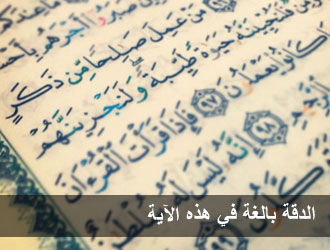 صَبَرُوا أَجْرَهُم
مَنْ عَمِلَ صَالِحًا مِّن ذَكَرٍ
فَلَنُحْيِيَنَّهُ حَيَوٰةً طَيِّبَةً وَلَنَجْزِيَنَّهُمْ
كَانُوا يَعْمَلُونَ ٩٧ فَإِذَا قَرَأْتَ الْقُرْءَانَ
الرَّجِيمِ ٩٨ إِنَّهُ لَيْسَ لَهُ سُلْطَٰنٌ
الدقة بالغة في هذه الآية